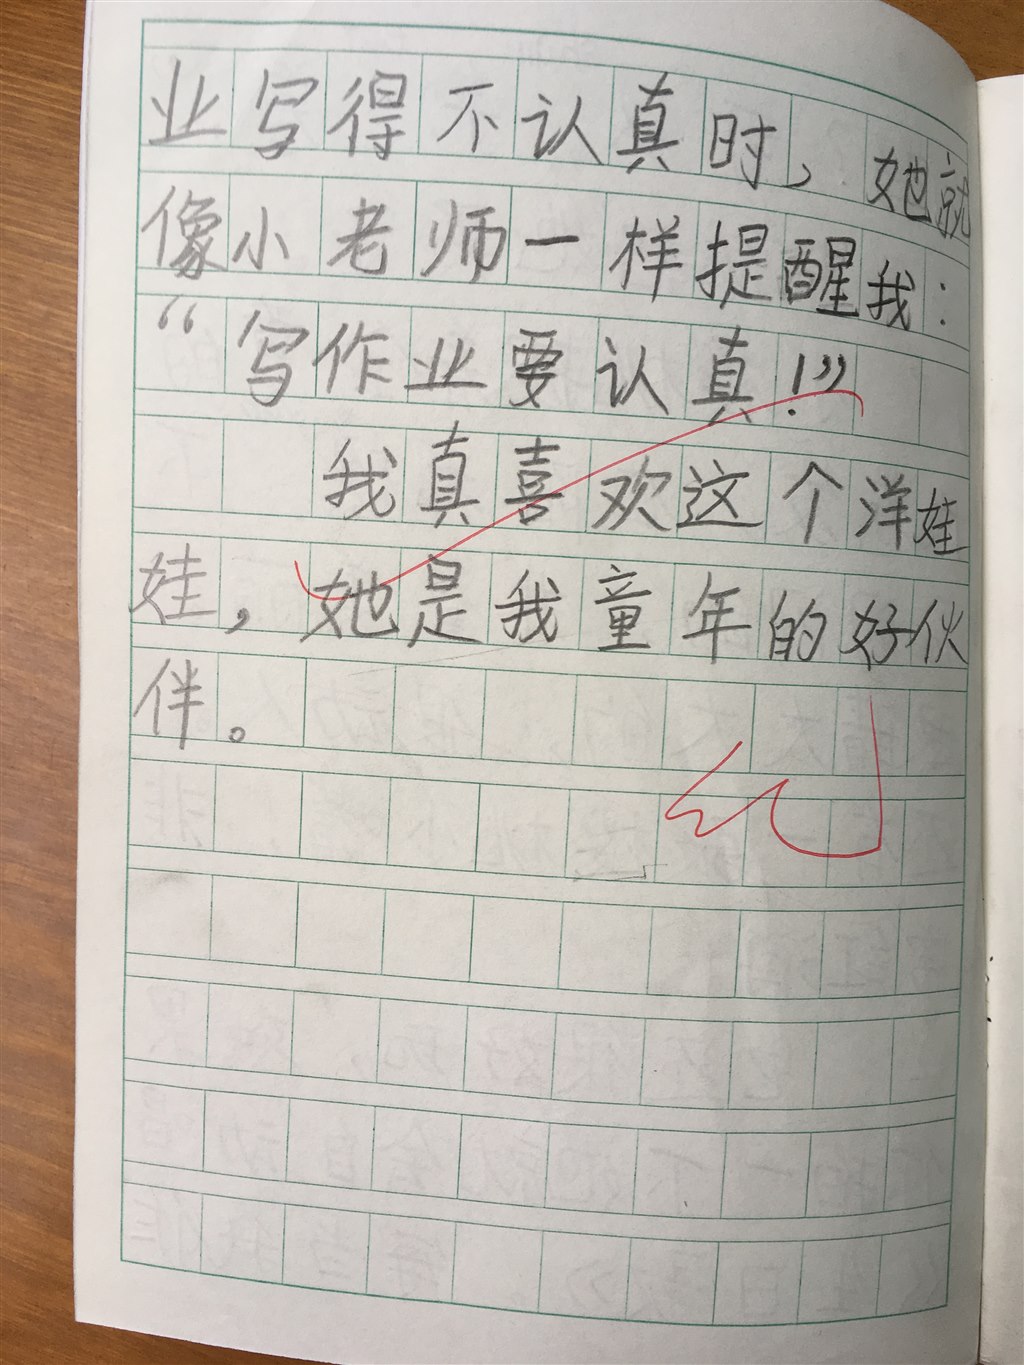 业写得不认真时，她就
像小老师一样提醒我：
“写作业要认真！”
我真喜欢这个洋娃
娃，她是我童年的好伙
伴。